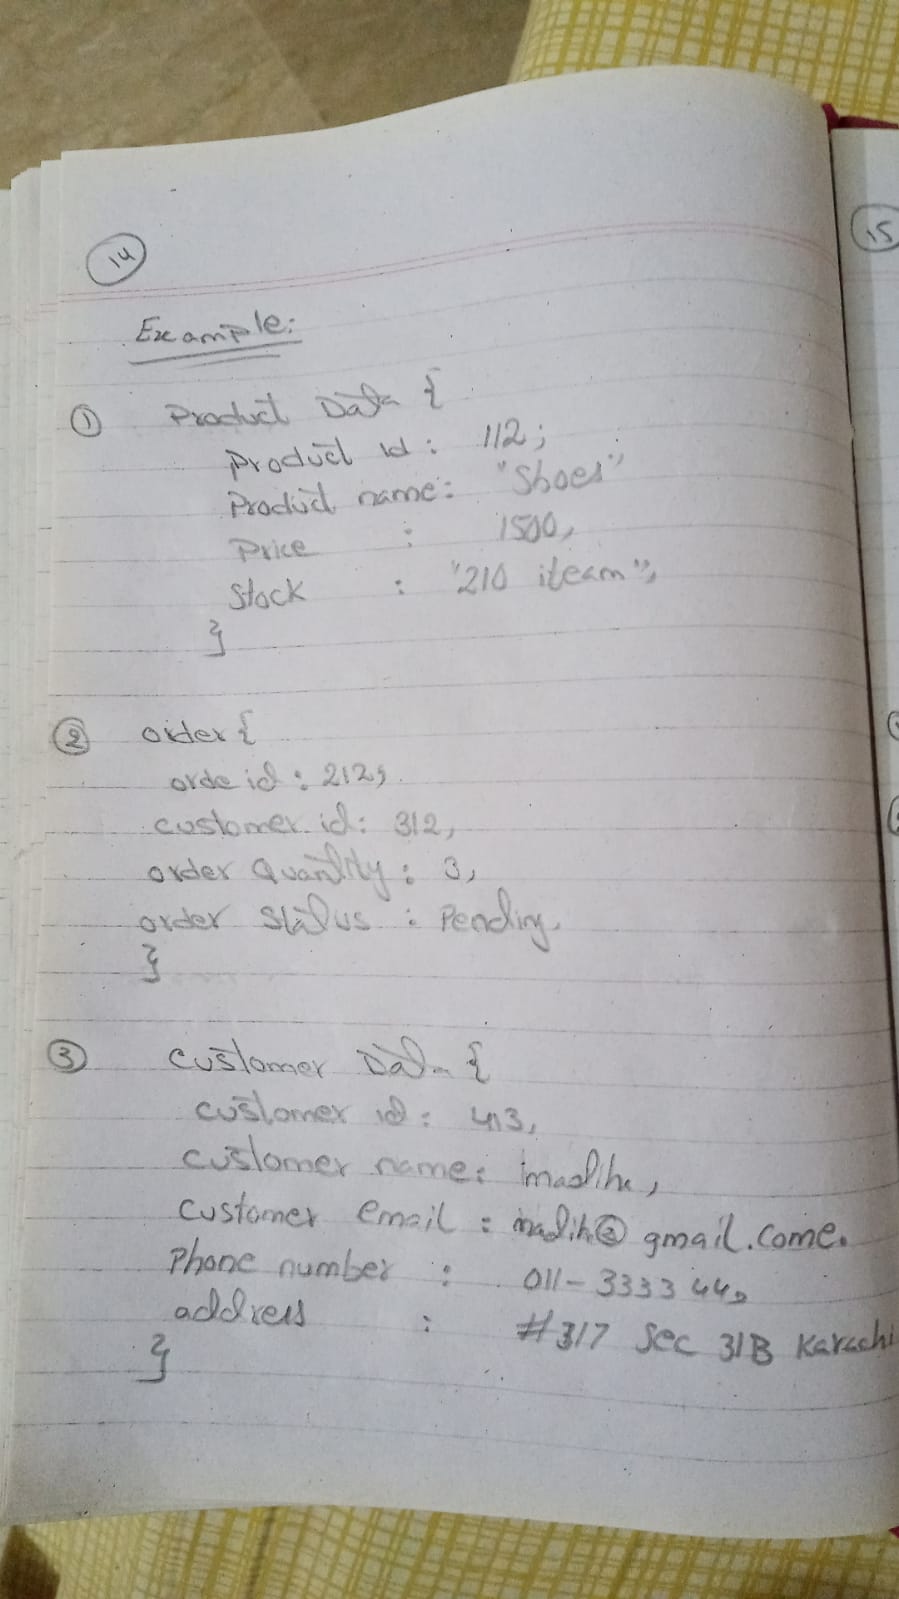 14
15
Example:
① Product Data {
Product id : 112;
Product name: "Shoes"
Price : 1500,
Stock : "210 iteam",
}
② order {
orde id : 212,
customer id: 312,
order Quantity : 3,
order Status : Pending.
}
③ Customer Data {
customer id : 413,
customer name: madiha,
customer email : madih@gmail.come.
Phone number : 011-3333 44,
address : #317 Sec 31B Karachi
}